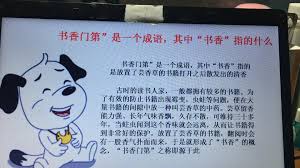 书香门第”是一个成语，其中“书香”指的什么
书香门第”是一个成语，其中“书香”指的
是放置了芸香草的书籍打开之后散发出的清香
古时的读书人家，一般都拥有较多的书籍，为
了有效的防止书籍出现霉变、虫蛀等问题，便在大
量书籍的问题中放一种叫芸香草的中药，芸草留香
能力强，长年气味香飘，久久不散，可维持三十多
年，当蛀虫闻到这个香味就会逃去，从而让书籍得
到非常好的保护。放置了芸香草的书籍，翻阅时会
有一股香气扑面而来，于是就形成了“书香”的概
念，“书香门第”之称即源于此